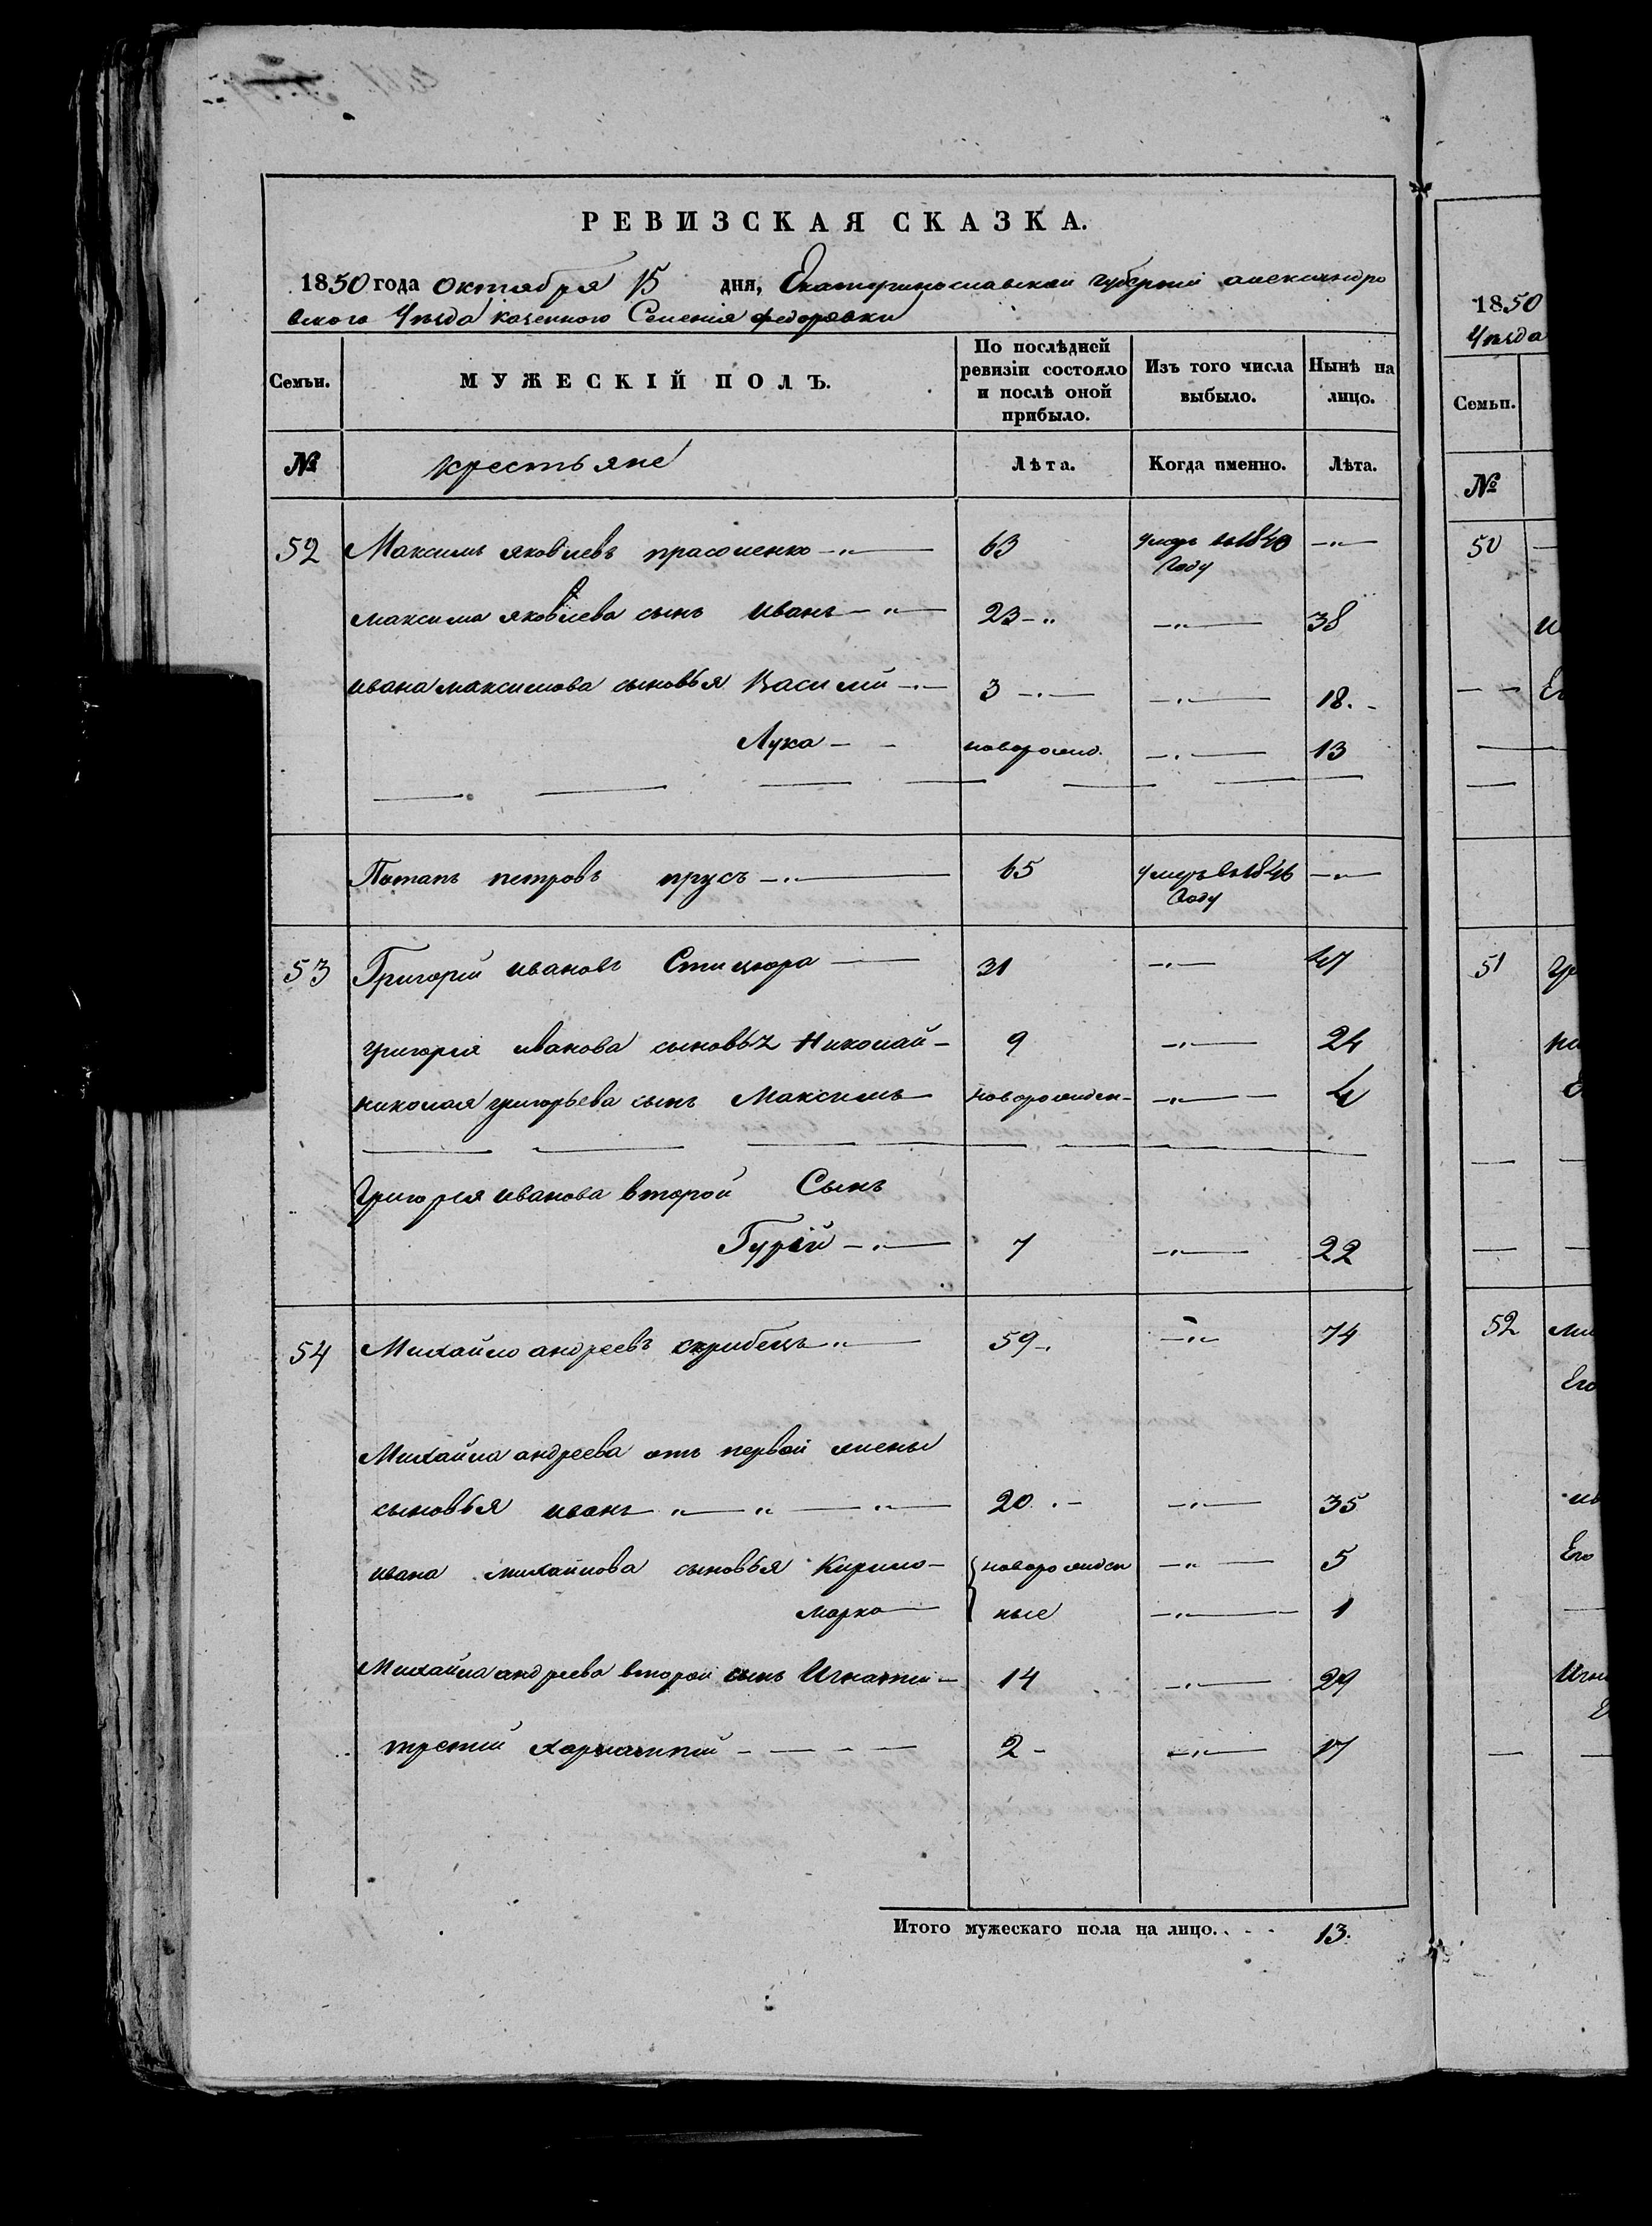 РЕВИЗСКАЯ СКАЗКА.
1850 года октября 15 дня, Екатеринославской губернии александро
вского Уѣзда казенного Селенія федоровки
Семьи. МУЖЕСКІЙ ПОЛЪ. По послѣдней ревизіи состояло и послѣ оной прибыло. Изъ того числа выбыло. Нынѣ на лицо.
№ крестьяне Лѣта. Когда именно. Лѣта.
52 Максимъ яковлевъ прасоленко 63 умеръ въ 1840 году
максима яковлева сынъ иванъ 23 38
ивана максимова сыновья Василій 3 18.
Лука новорожд. 13
Потапъ петровъ прусъ 65 умеръ въ 1846 году
53 Григорій ивановъ 31 47
григорія иванова сыновья николай 9 24
николая григорьева сынъ Максимъ новорожден 4
григорія иванова второй Сынъ
Гурій 7 22
54 Михайло андреевъ скрибецъ 59 74
Михайла андреева отъ первой жены
сыновья иванъ 20 35
ивана михайлова сыновья Кирило новорожден 5
марко ные 1
Михайла андреева второй сынъ Игнатій 14 29
третій 2 17
Итого мужескаго пола на лицо. 13.
1850
Уѣзда
Семьи.
№
50
51
52
Его
Его